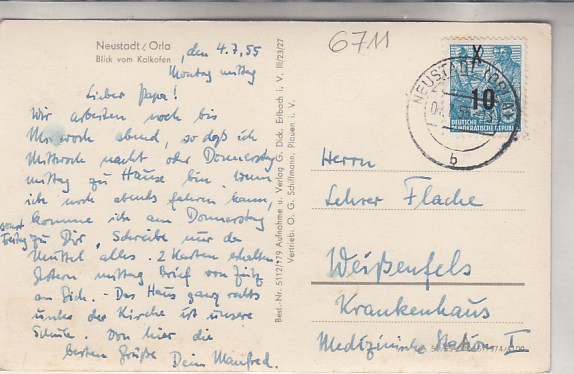 Neustadt / Orla
Blick vom Kalkofen
, den 4.7.55
Montag mittag
Lieber Papa!
Wir arbeiten noch bis
Mittwoch abend, so daß ich
Mittwoch nacht oder Donnerstag
mittag zu Hause bin. Wenn
ich noch abends fahren kann,
komme ich am Donnerstag
sonst Freitag
zu Dir. Schreibe nur der
Mutter alles. 2 Karten erhalten.
Gestern mittag Brief von
an Dich. - Das Haus ganz rechts
unter der Kirche ist unsere
Schule. Von hier die
besten Grüße Dein Manfred.
Best.-Nr. 5112/179 Aufnahme u. Verlag G. Dick, Erlbach i. V. III/23/27
Vertrieb: O. G. Schiffmann, Plauen i. V.
6711
X
10
DEUTSCHE
DEMOKRATISCHE REPUBLIK
NEUSTADT (ORLA)
b
Herrn
Lehrer Flache
Weißenfels
Krankenhaus
Medizinische Station I